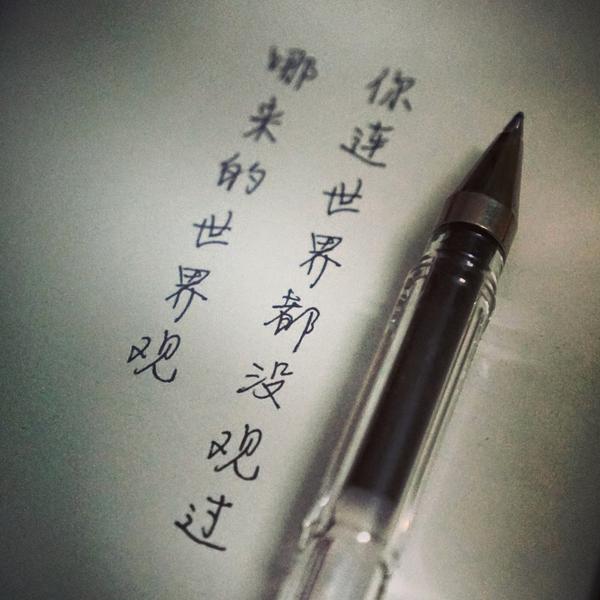 你连世界都没观过
哪来的世界观